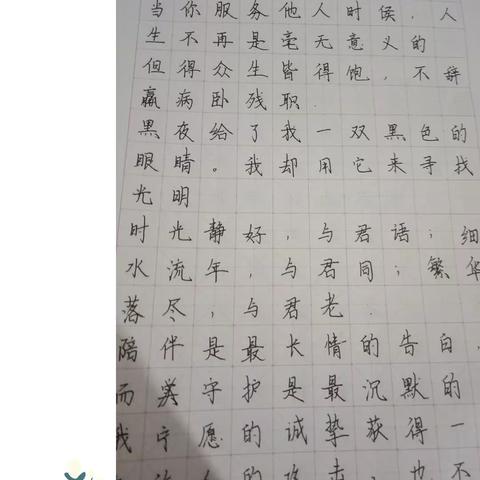 当你服务他人时候，人
生不再是毫无意义的
但得众生皆得饱，不辞
羸病卧残职.
黑夜给了我一双黑色的
眼睛。我却用它来寻找
光明
时光静好，与君语；细
水流年，与君同；繁华
落尽，与君老.
陪伴是最长情的告白，
而守护是最沉默的
我宁愿的诚挚获得一
的攻击，也不